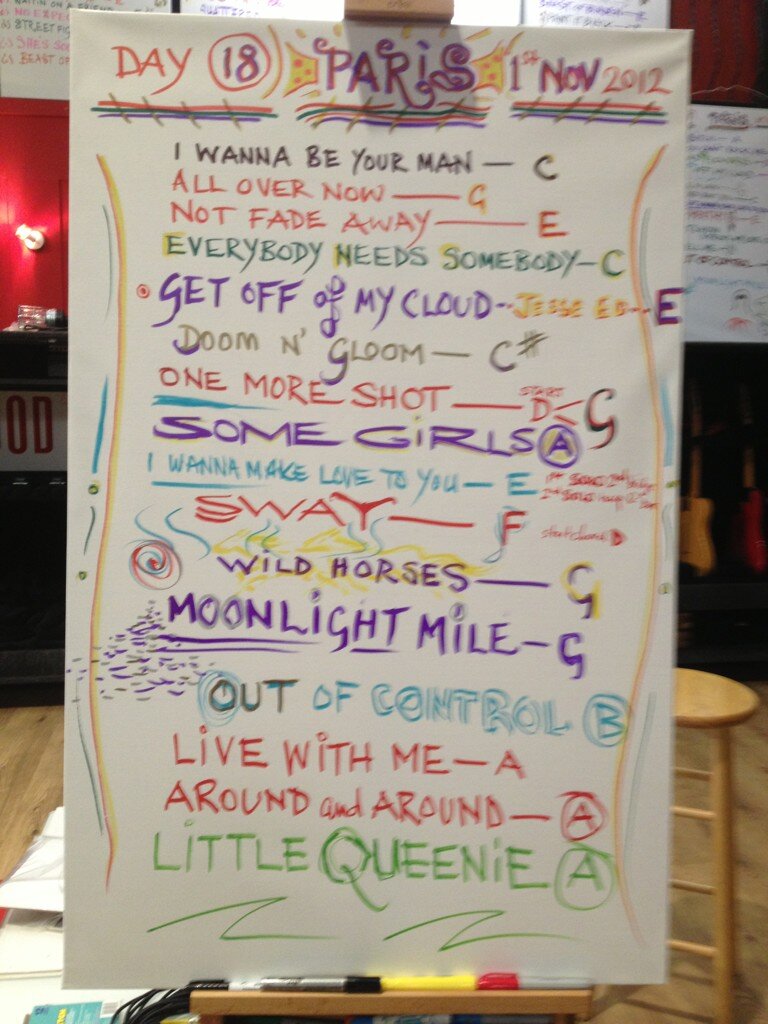 WAITIN ON A FRIEND
6) STREET FIG
6) SHE'S SO
6) BEAST OF
DAY 18 PARIS 1ST NOV 2012
I WANNA BE YOUR MAN — C
ALL OVER NOW — G
NOT FADE AWAY — E
EVERYBODY NEEDS SOMEBODY — C
GET OFF of MY CLOUD -- JESSE ED -- E
DOOM N' GLOOM — C#
ONE MORE SHOT — START D < G
SOME GiRLS A
I WANNA MAKE LOVE TO YOU — E
SWAY — F
WILD HORSES — G
MOONLiGHT MiLE — G
OUT OF CONTROL B
LiVE WiTH ME — A
AROUND and AROUND — A
LiTTLE QUEENiE A
OD